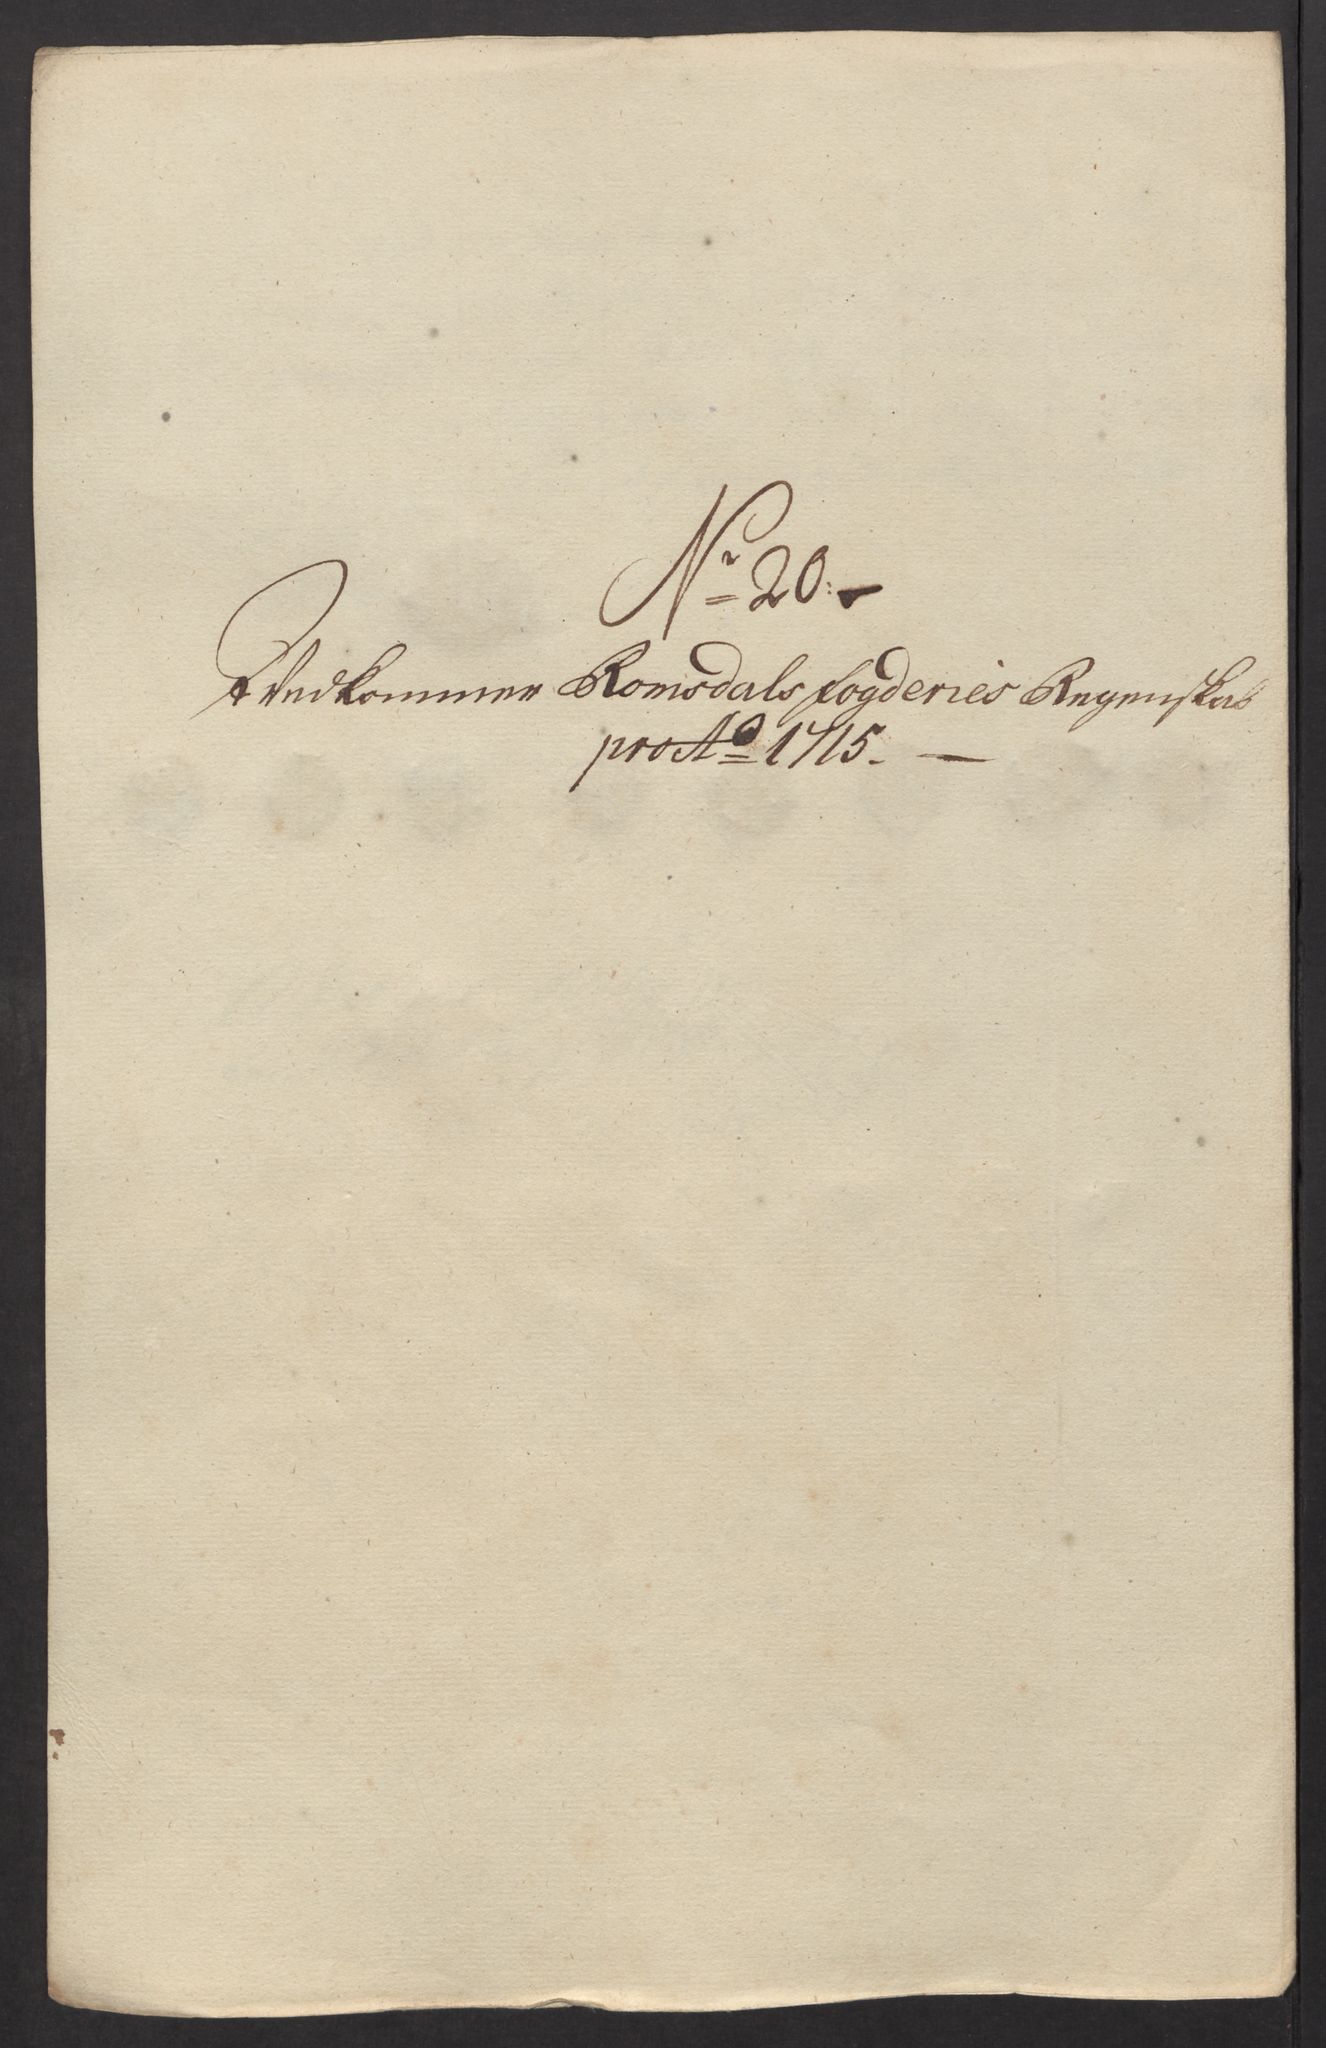 Nr 20.
Vedkommer Romsdals fogderies Regenskab
pro Ao 1715.